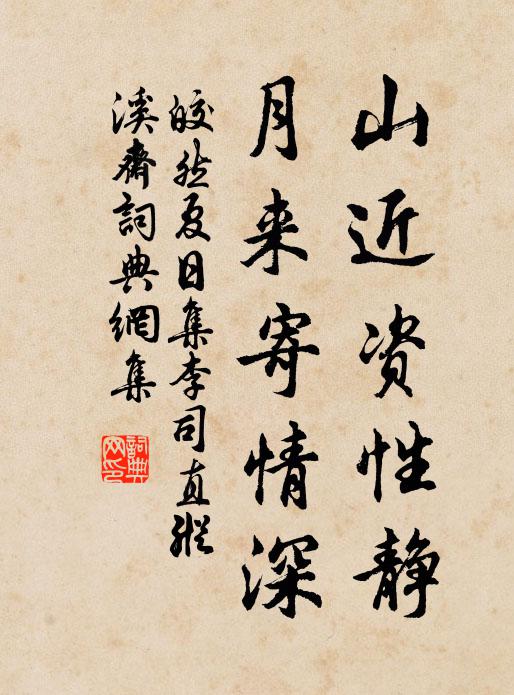 山近资性静
月来寄情深
皎然夏日集李司直縱
溪齋詞典網集
詞典
网印